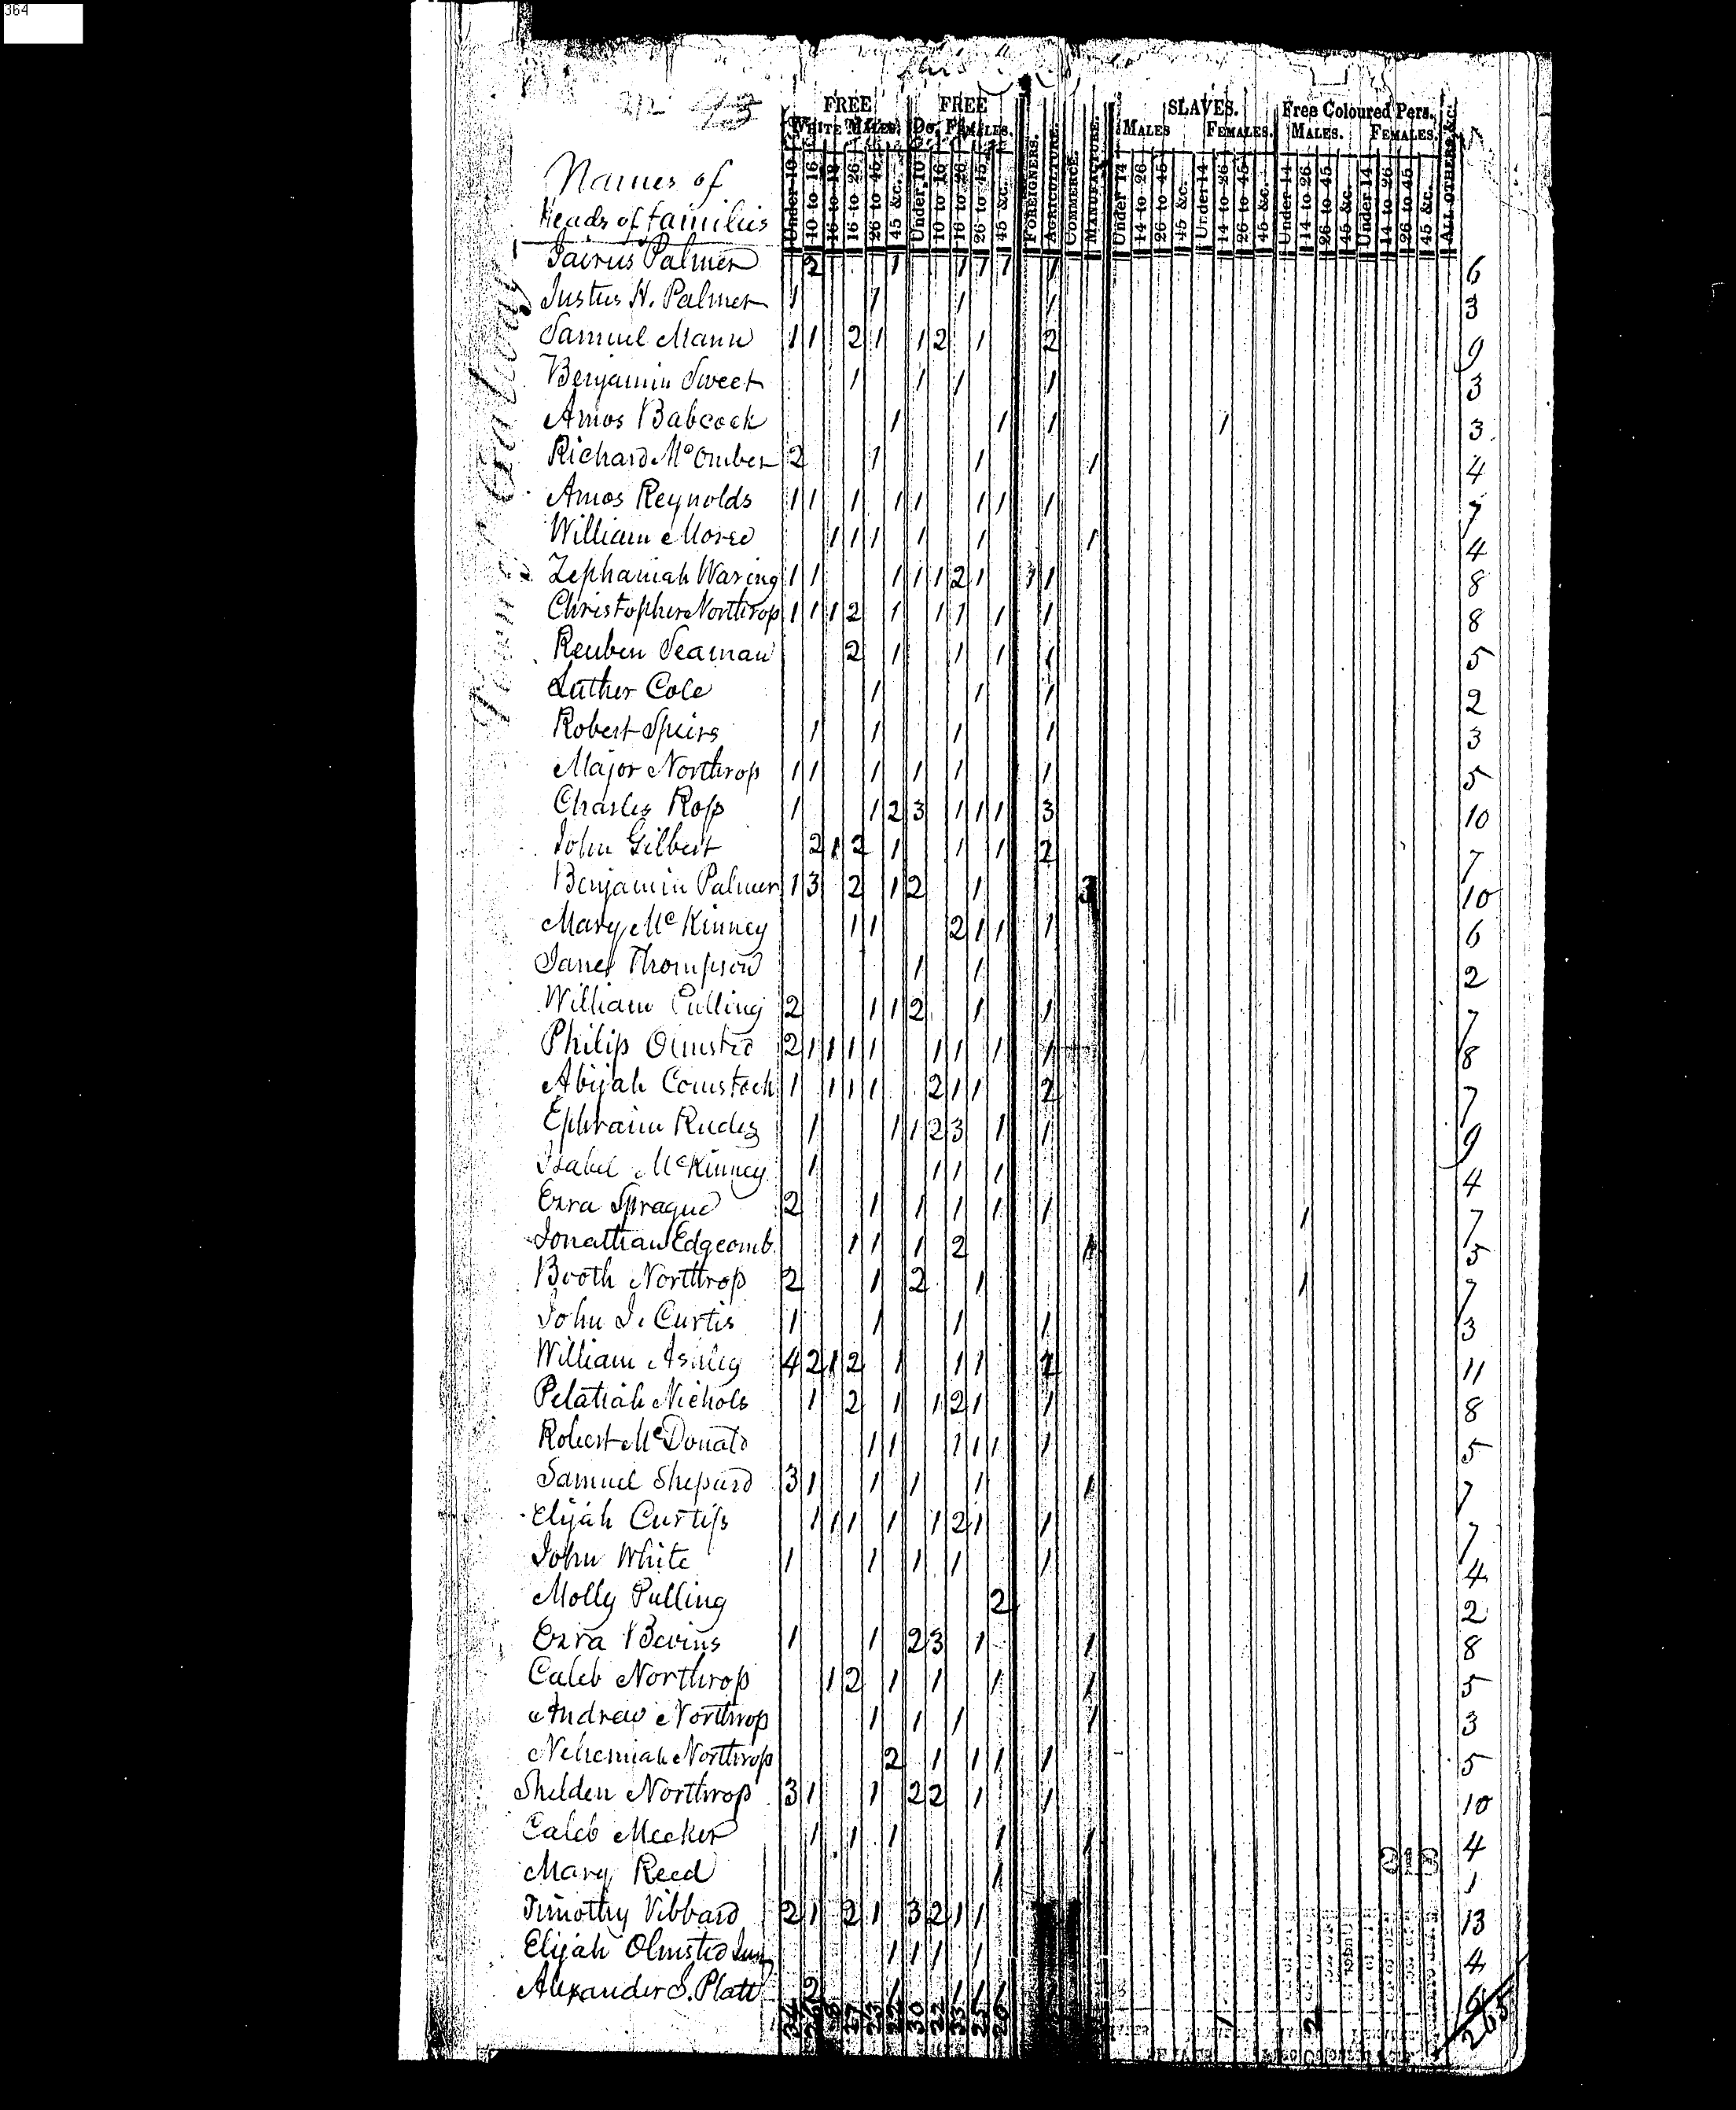 364
93
FREE WHITE MALES. FREE Do. FEMALES. FOREIGNERS. AGRICULTURE. COMMERCE. MANUFACTURE. SLAVES. MALES FEMALES. Free Coloured Pers. MALES. FEMALES. ALL OTHERS &c.
Under 10 10 to 16 16 to 18 16 to 26 26 to 45 45 &c. Under 10 10 to 16 16 to 26 26 to 45 45 &c. Under 14 14 to 26 26 to 45 45 &c. Under 14 14 to 26 26 to 45 45 &c. Under 14 14 to 26 26 to 45 45 &c. Under 14 14 to 26 26 to 45 45 &c.
Names of
Heads of Families
Town of Galway
Jairus Palmer 2 1 1 1 1 1 6
Justus H. Palmer 1 1 1 1 3
Samuel Mann 1 1 2 1 1 2 1 2 9
Benjamin Sweet 1 1 1 1 3
Amos Babcock 1 1 1 1 3
Richard McOmber 2 1 1 1 4
Amos Reynolds 1 1 1 1 1 1 1 1 7
William Morse 1 1 1 1 1 1 4
Zephaniah Waring 1 1 1 1 1 2 1 1 1 8
Christopher Northrop 1 1 1 2 1 1 1 1 1 8
Reuben Seaman 2 1 1 1 1 5
Luther Cole 1 1 1 2
Robert Speirs 1 1 1 1 3
Major Northrop 1 1 1 1 1 1 5
Charles Ross 1 1 2 3 1 1 1 3 10
John Gilbert 2 1 2 1 1 1 2 7
Benjamin Palmer 1 3 2 1 2 1 3 10
Mary McKinney 1 1 2 1 1 1 6
James Thompson 1 1 2
William Pulling 2 1 1 2 1 1 7
Philip Olmsted 2 1 1 1 1 1 1 1 1 8
Abijah Comstock 1 1 1 1 2 1 1 2 7
Ephraim Rudes 1 1 1 2 3 1 1 9
Isabel McKinney 1 1 1 1 4
Ezra Sprague 2 1 1 1 1 1 1 7
Jonathan Edgcomb 1 1 1 2 1 5
Booth Northrop 2 1 2 1 1 7
John I. Curtis 1 1 1 1 3
William Ashley 4 2 1 2 1 1 1 2 11
Pelatiah Nichols 1 2 1 1 2 1 1 8
Robert McDonald 1 1 1 1 1 1 5
Samuel Shepard 3 1 1 1 1 1 7
Elijah Curtiss 1 1 1 1 1 2 1 1 7
John White 1 1 1 1 1 4
Molly Pulling 2 2
Ezra Bevins 1 1 2 3 1 1 8
Caleb Northrop 1 2 1 1 1 1 5
Andrew Northrop 1 1 1 1 3
Nehemiah Northrop 2 1 1 1 1 5
Shelden Northrop 3 1 1 2 2 1 1 10
Caleb Meeker 1 1 1 1 1 4
Mary Reed 1 1
Timothy Vibbard 2 1 2 1 3 2 1 1 13
Elijah Olmsted Jun 1 1 1 1 4
Alexander S. Platt 2 1 1 1 1 6
30 22 1 2 265